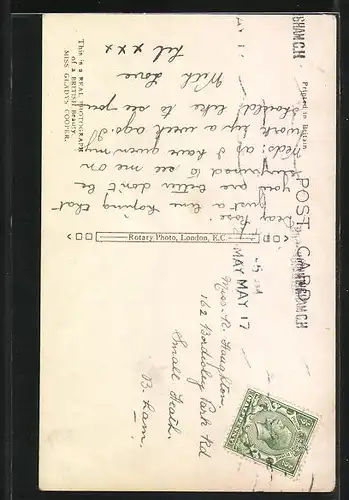 POST CARD
Printed in Britain
This is a REAL PHOTOGRAPH
of a BRITISH Beauty.
MISS GLADYS COOPER.
Rotary Photo, London, E.C.
Dear Rose,
Just a line hoping that
you are better don't be
surprised to see me on
Weds: as I have given my
work up a week ago I
should like to see you
With Love
Lil x x x
MAY MAY 17
Miss R. Haughton
162 Bordesley Park Rd
Small Heath.
B. Ham.